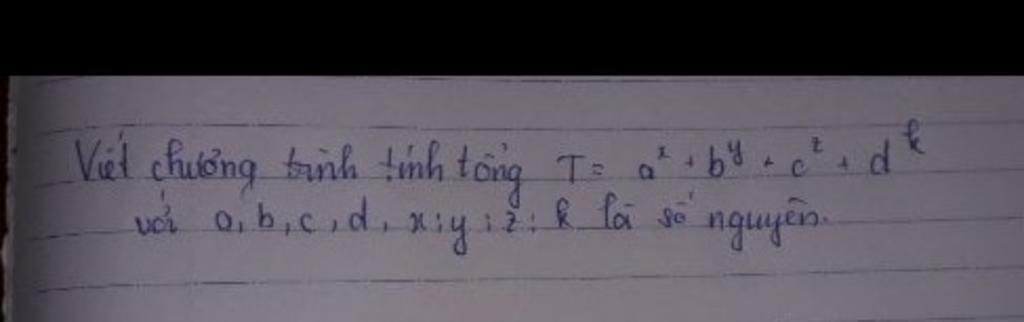 Viết chương trình tính tổng T = a^x + b^y + c^z + d^k
với a, b, c, d, x; y; z; k là số nguyên.